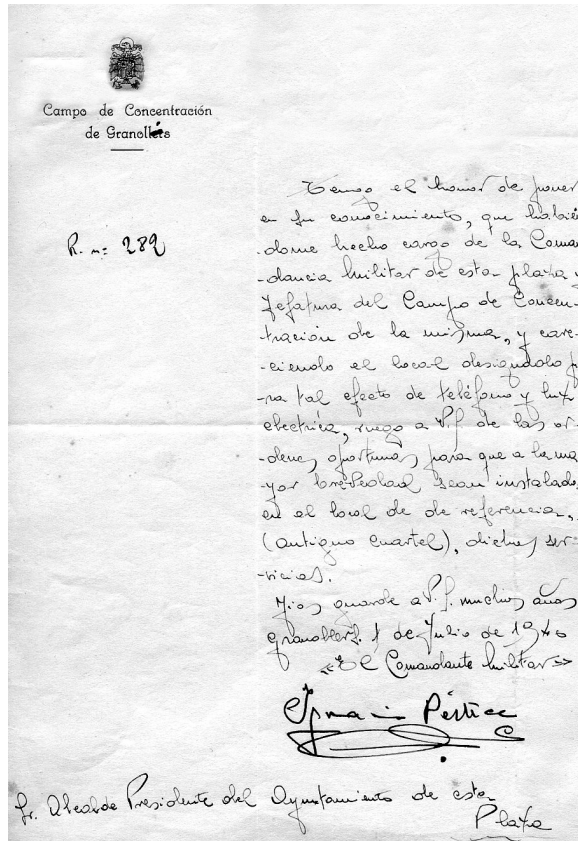 Campo de Concentración
de Granollers
R. n: 282
Tengo el honor de poner
en su conocimiento, que habién
-dome hecho cargo de la Coman
-dancia militar de esta plaza y
Jefatura del Campo de Concen-
-tración de la misma, y care-
-ciendo el local designado p
-ra tal efecto de teléfono y luz
electrica, ruego a V.S. de las or-
-denes oportunas para que a la ma
-yor brevedad sean instalados
en el local de de referencia,
(antiguo cuartel), dichos ser-
-vicios.
Dios guarde a V.S. muchos años
Granollers. 1 de Julio de 1940
«El Comandante militar»
Ignacio
Sr. Alcalde Presidente del Ayuntamiento de esta
Plaza